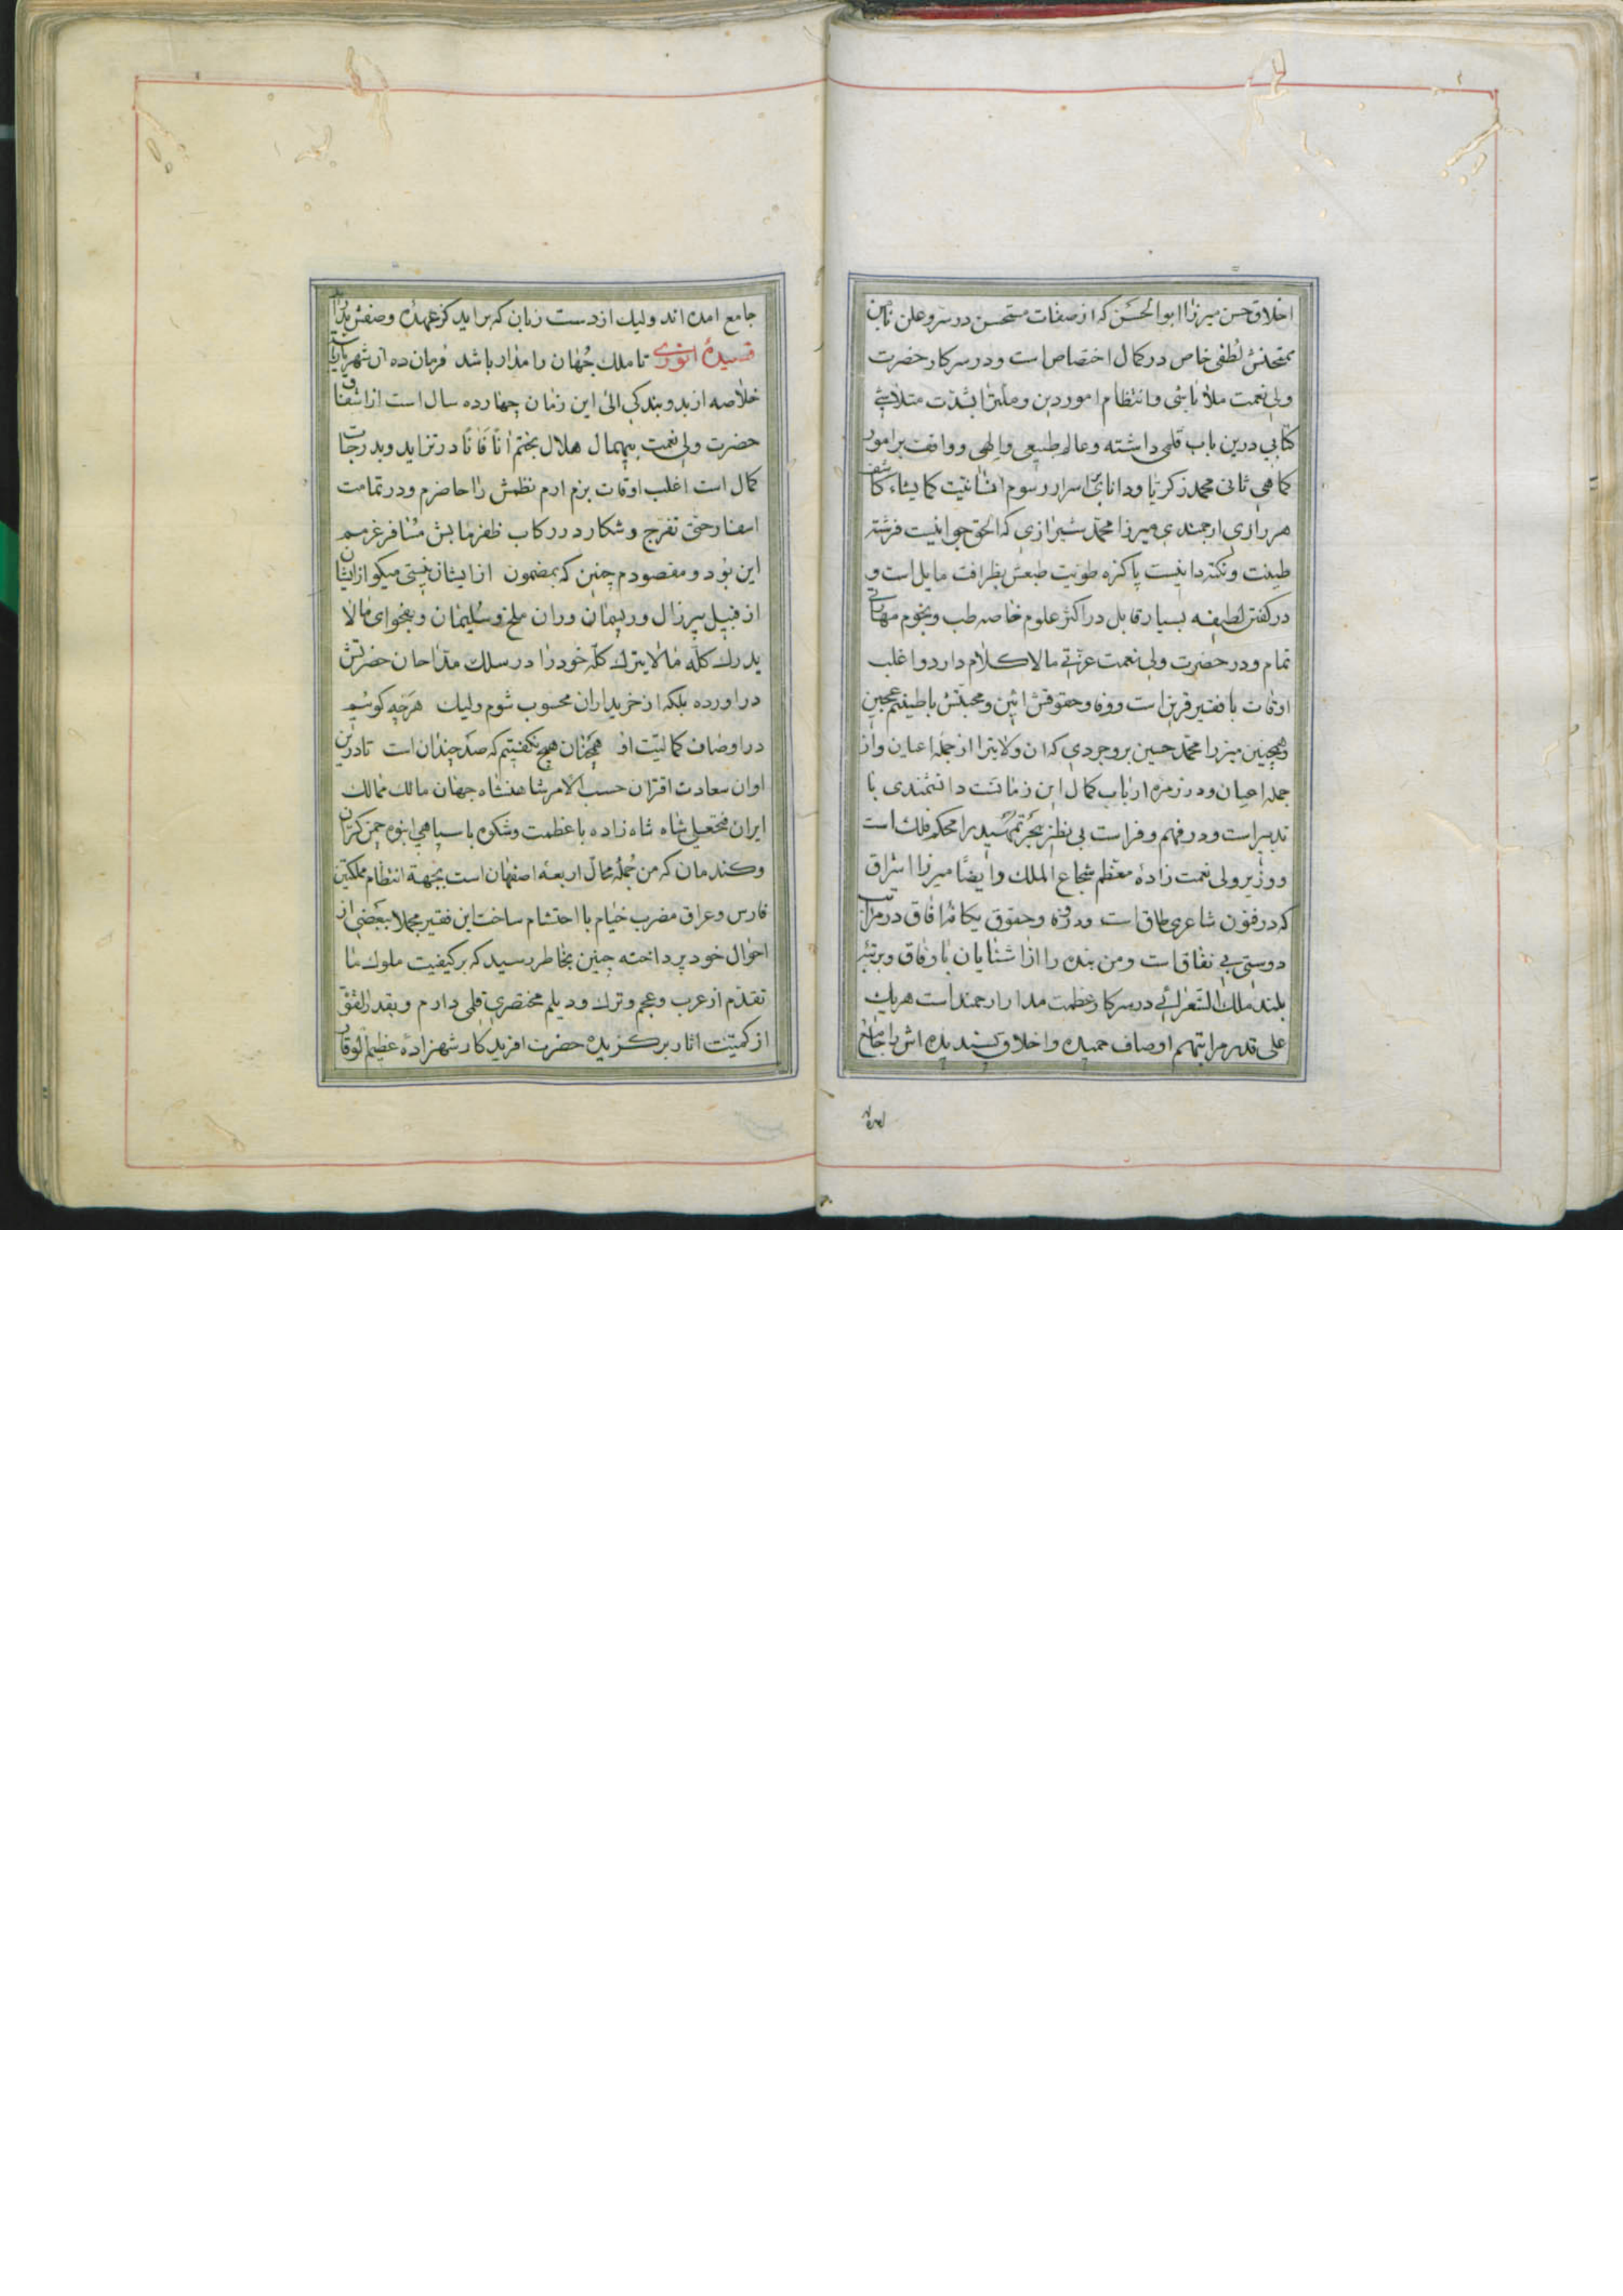 اخلاق حسن میرزا ابوالحسن که از صفات مستحسن در سر و علن
لطفی خاص در کمال اختصاص است و در سرکار حضرت
ولی نعمت ملا باشی و انتظام امور دین و ملت را
کتابی درین باب قلمی داشته و عالم طبیعی و الهی و واقف بر امور
کماهی ثانی محمد زکریا و دانای اسرار رسوم انسانیت کما یشاء کاشف
هر رازی ارجمندی میرزا محمد شیرازی که الحق جوانیست فرشته
طینت و نکته دانیست پاکزه طویت طبعش بظرافت مایل است و
در گفتن لطیفه بسیار قابل در اکثر علوم خاصه طب و نجوم مهارتی
تمام و در حضرت ولی نعمت عزتی مالاکلام دارد و اغلب
اوقات با فقیر قرین است و وفا و حقوقش ائین و محبتش با طینتم عجین
و همچنین میرزا محمد حسین بروجردی که ان ولایترا از جمله اعیان و از
جمله اعیان و در زمره ارباب کمال این زمانست دانشمندی با
تدبیر است و در فهم و فراست بی نظیر محکم فلک است
و وزیر ولی نعمت زاده معظم شجاع الملک و ایضا میرزا اشراق
که در فنون شاعری طاق است و در وفا و حقوق یکانه افاق در مراتب
دوستی بی نفاق است و من بنده را از اشنایان با وفاق و برتبه
بلند ملک الشعرائی در سرکار عظمت مدار ارجمند است هریک
علی قدر مراتبهم اوصاف حمیده و اخلاق پسندیده اش را جامع
جامع امده اند ولیک از دست زبان که براید کز عهده وصفش بدراید
قصیده انوری تا ملک جهان را مدار باشد فرمان ده ان شهریار باشد
خلاصه از بدو بندگی الی این زمان چهارده سال است از اشفاق
حضرت ولی نعمت بیهمال هلال بختم انا فانا در تزاید و بدرجات
کمال است اغلب اوقات بزم ارم نظمش را حاضرم و در تمامت
اسفار حتی تفرج و شکار در رکاب ظفرمابش مسافر غرضم
این بود و مقصودم چنین که بمضمون از ایشان نیستی میکو از ایشان
از قبیل پیرزال و ریسمان و ران ملخ و سلیمان و بفحوای مالا
یدرک کله لا یترک کله خود را در سلک مداحان حضرتش
در اورده بلکه از خریداران محسوب شوم ولیک هرچه کوئیم
در اوصاف کمالیت او همچنان هیچ نکفتیم که صد چندان است تا درین
اوان سعادت اقتران حسب الامر شاهنشاه جهان مالک ممالک
ایران فتحعلی شاه شاه زاده با عظمت و شکوه با سپاهی انبوه چمن کزان
و کندمان که من جمله محال اربعه اصفهان است بجهة انتظام مملکتین
فارس و عراق مضرب خیام با احتشام ساخت این فقیر مجملا ببعضی از
احوال خود پرداخته چنین بخاطر رسید که بر کیفیت ملوک ما
تقدم از عرب و عجم و ترک و دیلم مختصری قلمی دارم و بقدر القوة
از کمیت اثار برکزیده حضرت افریدکار شهزاده عظیم الوقار